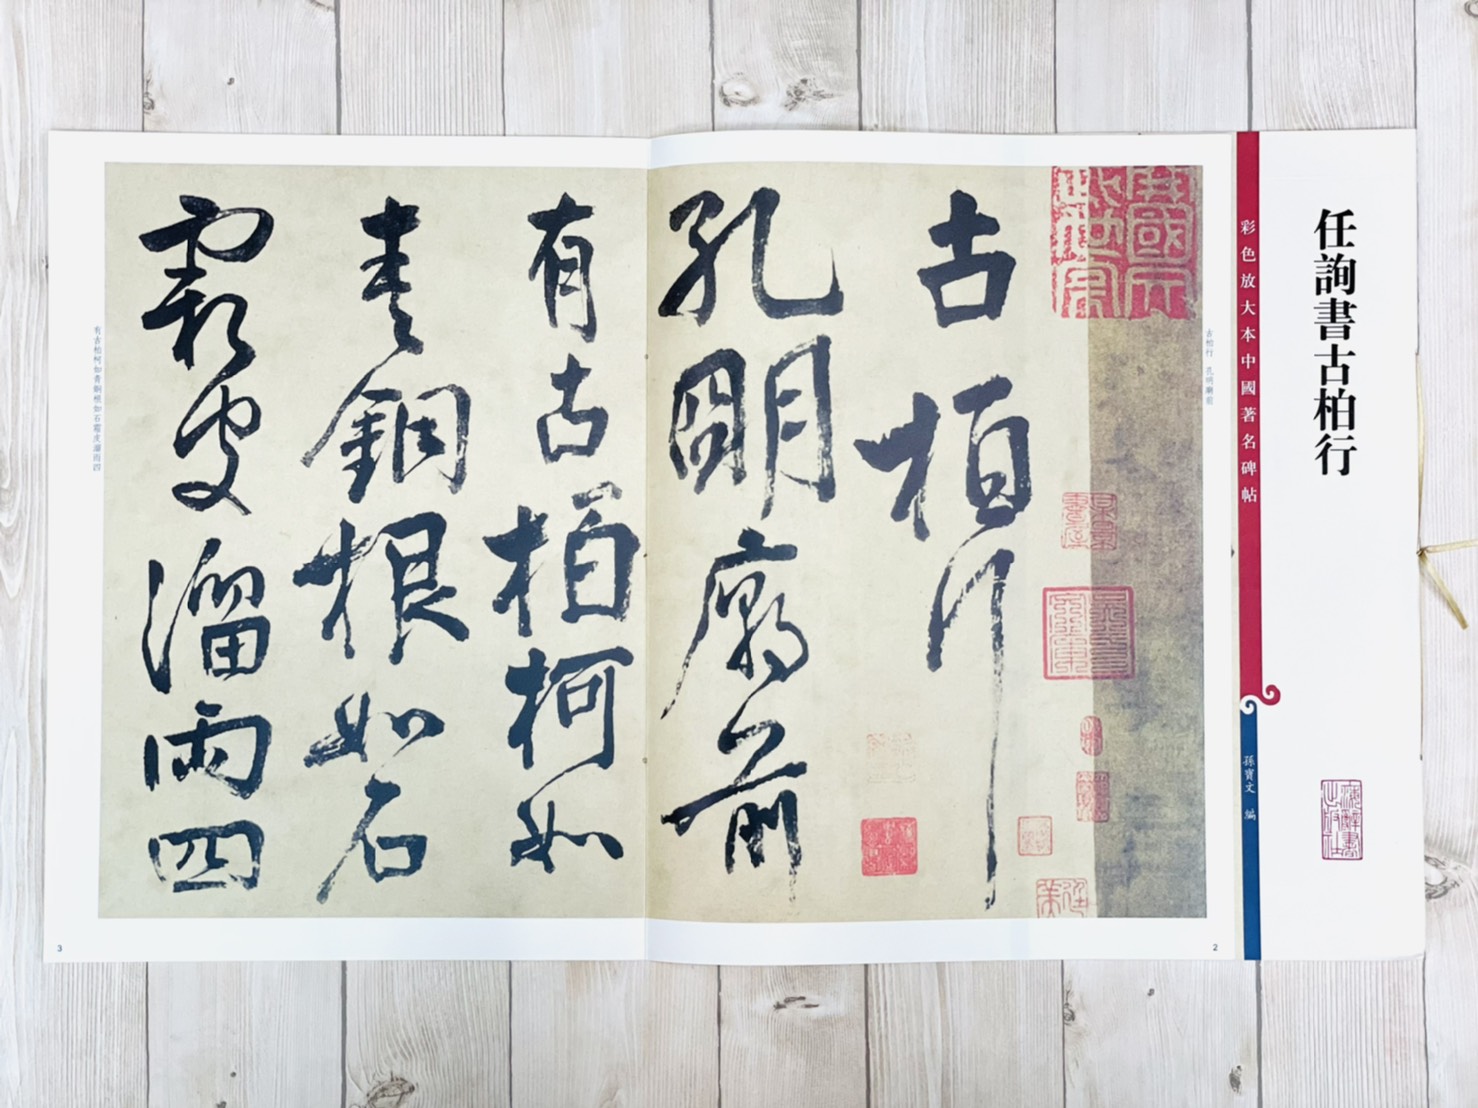 任詢書古柏行
彩色放大本中國著名碑帖
孫寶文 編
古柏行 孔明廟前
古柏行
孔明廟前
有古柏柯如
青銅根如石
霜皮溜雨四
有古柏柯如青銅根如石霜皮溜雨四
2
3